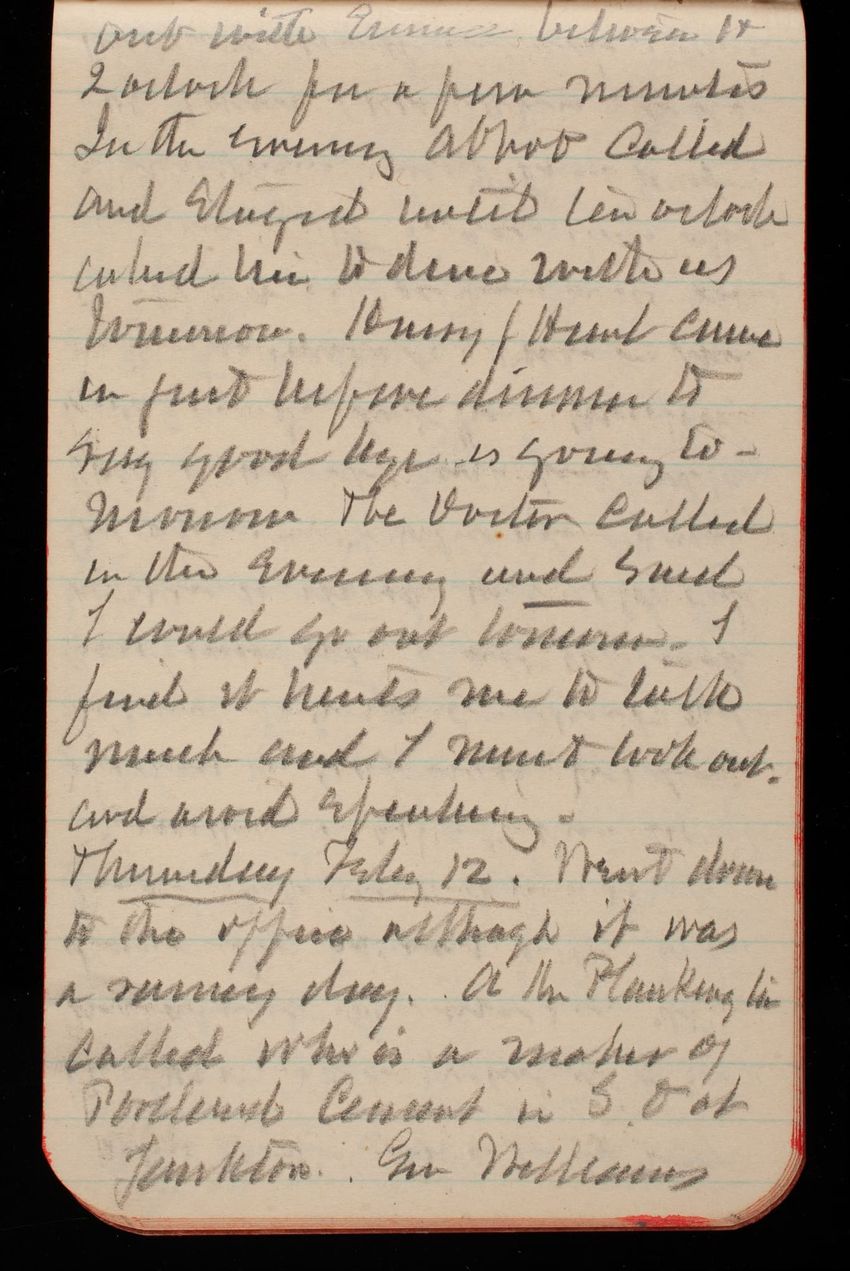 out with Emma between 1 &
2 oclock for a few minutes
In the evening Abbot called
and stayed until ten oclock
asked him to dine with us
tomorrow. Henry Hunt came
in just before dinner to
say good bye is going to-
morrow The Doctor called
in the evening and said
I could go out tomorrow. I
find it hurts me to talk
much and I must look out.
and avoid speaking.
Thursday Feby 12. Went down
to the office although it was
a rainy day. A Mr Plankington
called who is a maker of
Portland Cement in S.D at
Yankton. Gen Williams